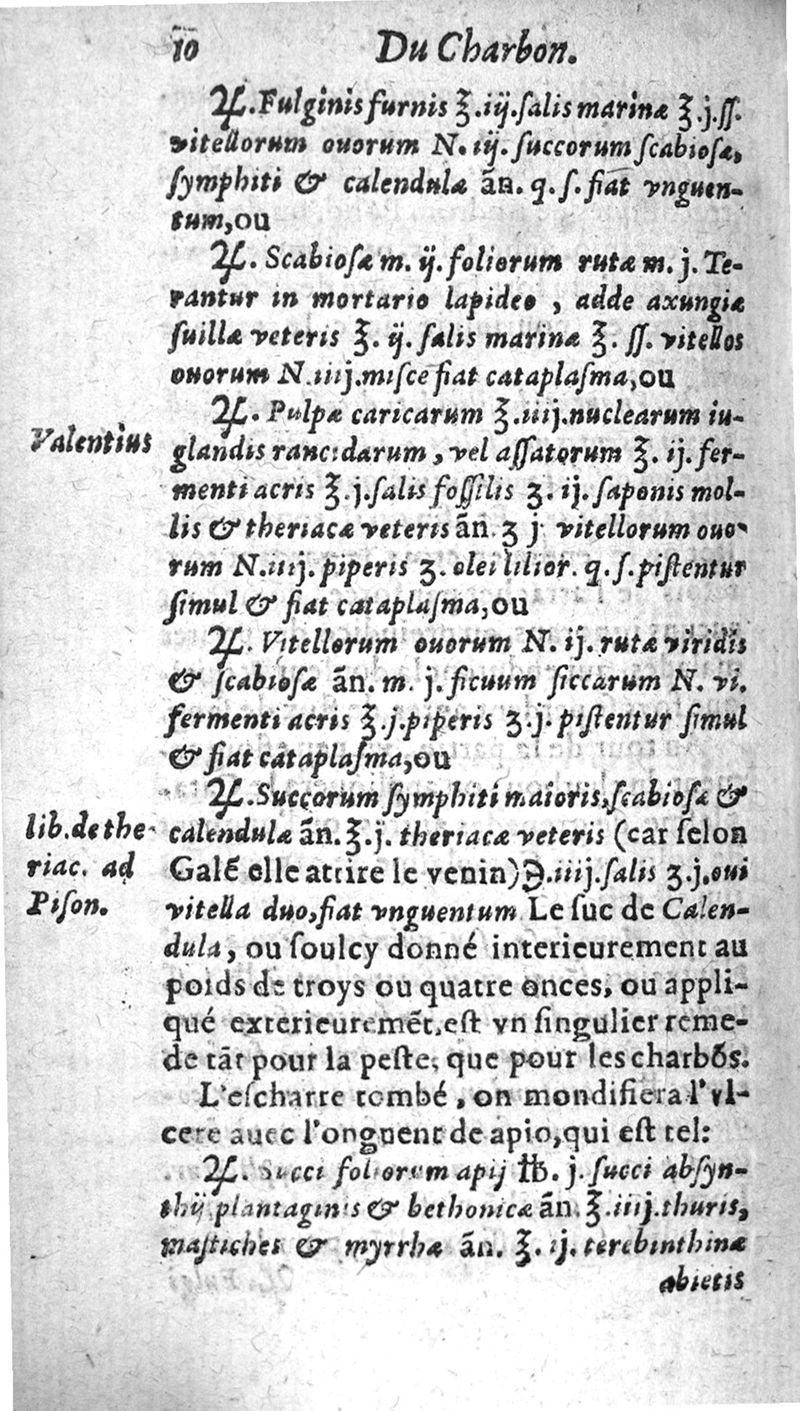 10 Du Charbon.
♃. Fulginis furnis ℥.iij.ſalis marinæ ℥.j.ſſ.
vitellorum ouorum N. iij. ſuccorum ſcabioſæ,
ſymphiti & calendulæ ãn. q. ſ. fiat vnguen-
tum,ou
♃. Scabioſæ m. ij. foliorum rutæ m. j. Te-
rantur in mortario lapideo , adde axungiæ
ſuillæ veteris ℥. ij. ſalis marinæ ℥. ſſ. vitellos
ouorum N.iiij.miſce fiat cataplaſma,ou
♃. Pulpæ caricarum ℥.iiij.nuclearum iu-
Valentius
glandis rancidarum , vel aſſatorum ℥. ij. fer-
menti acris ℥.j.ſalis foſſilis ʒ. ij. ſaponis mol-
lis & theriacæ veteris ãn. ʒ j. vitellorum ouo-
rum N.iiij. piperis ʒ. olei lilior. q. ſ. piſtentur
ſimul & fiat cataplaſma,ou
♃. Vitellorum ouorum N. ij. rutæ viridis
& ſcabioſæ ãn. m. j. ficuum ſiccarum N. vi.
fermenti acris ℥.j.piperis ʒ.j. piſtentur ſimul
& fiat cataplaſma,ou
♃.Succorum ſymphiti maioris,ſcabioſæ &
lib.de the-
riac. ad
Piſon.
calendulæ ãn.℥.j. theriacæ veteris (car ſelon
Galẽ elle attire le venin)℈.iiij.ſalis ʒ.j.oui
vitella duo,fiat vnguentum Le ſuc de Calen-
dula, ou ſoulcy donné interieurement au
poids de troys ou quatre onces, ou appli-
qué exterieuremẽt,eſt vn ſingulier reme-
de tãt pour la peſte, que pour les charbõs.
L'eſcharre tombé , on mondifiera l'vl-
cere auec l'onguent de apio,qui eſt tel:
♃. Succi foliorum apij ℔. j. ſucci abſyn-
thij plantaginis & bethonicæ ãn. ℥.iiij.thuris,
maſtiches & myrrhæ ãn. ℥. ij. terebinthinæ
abietis